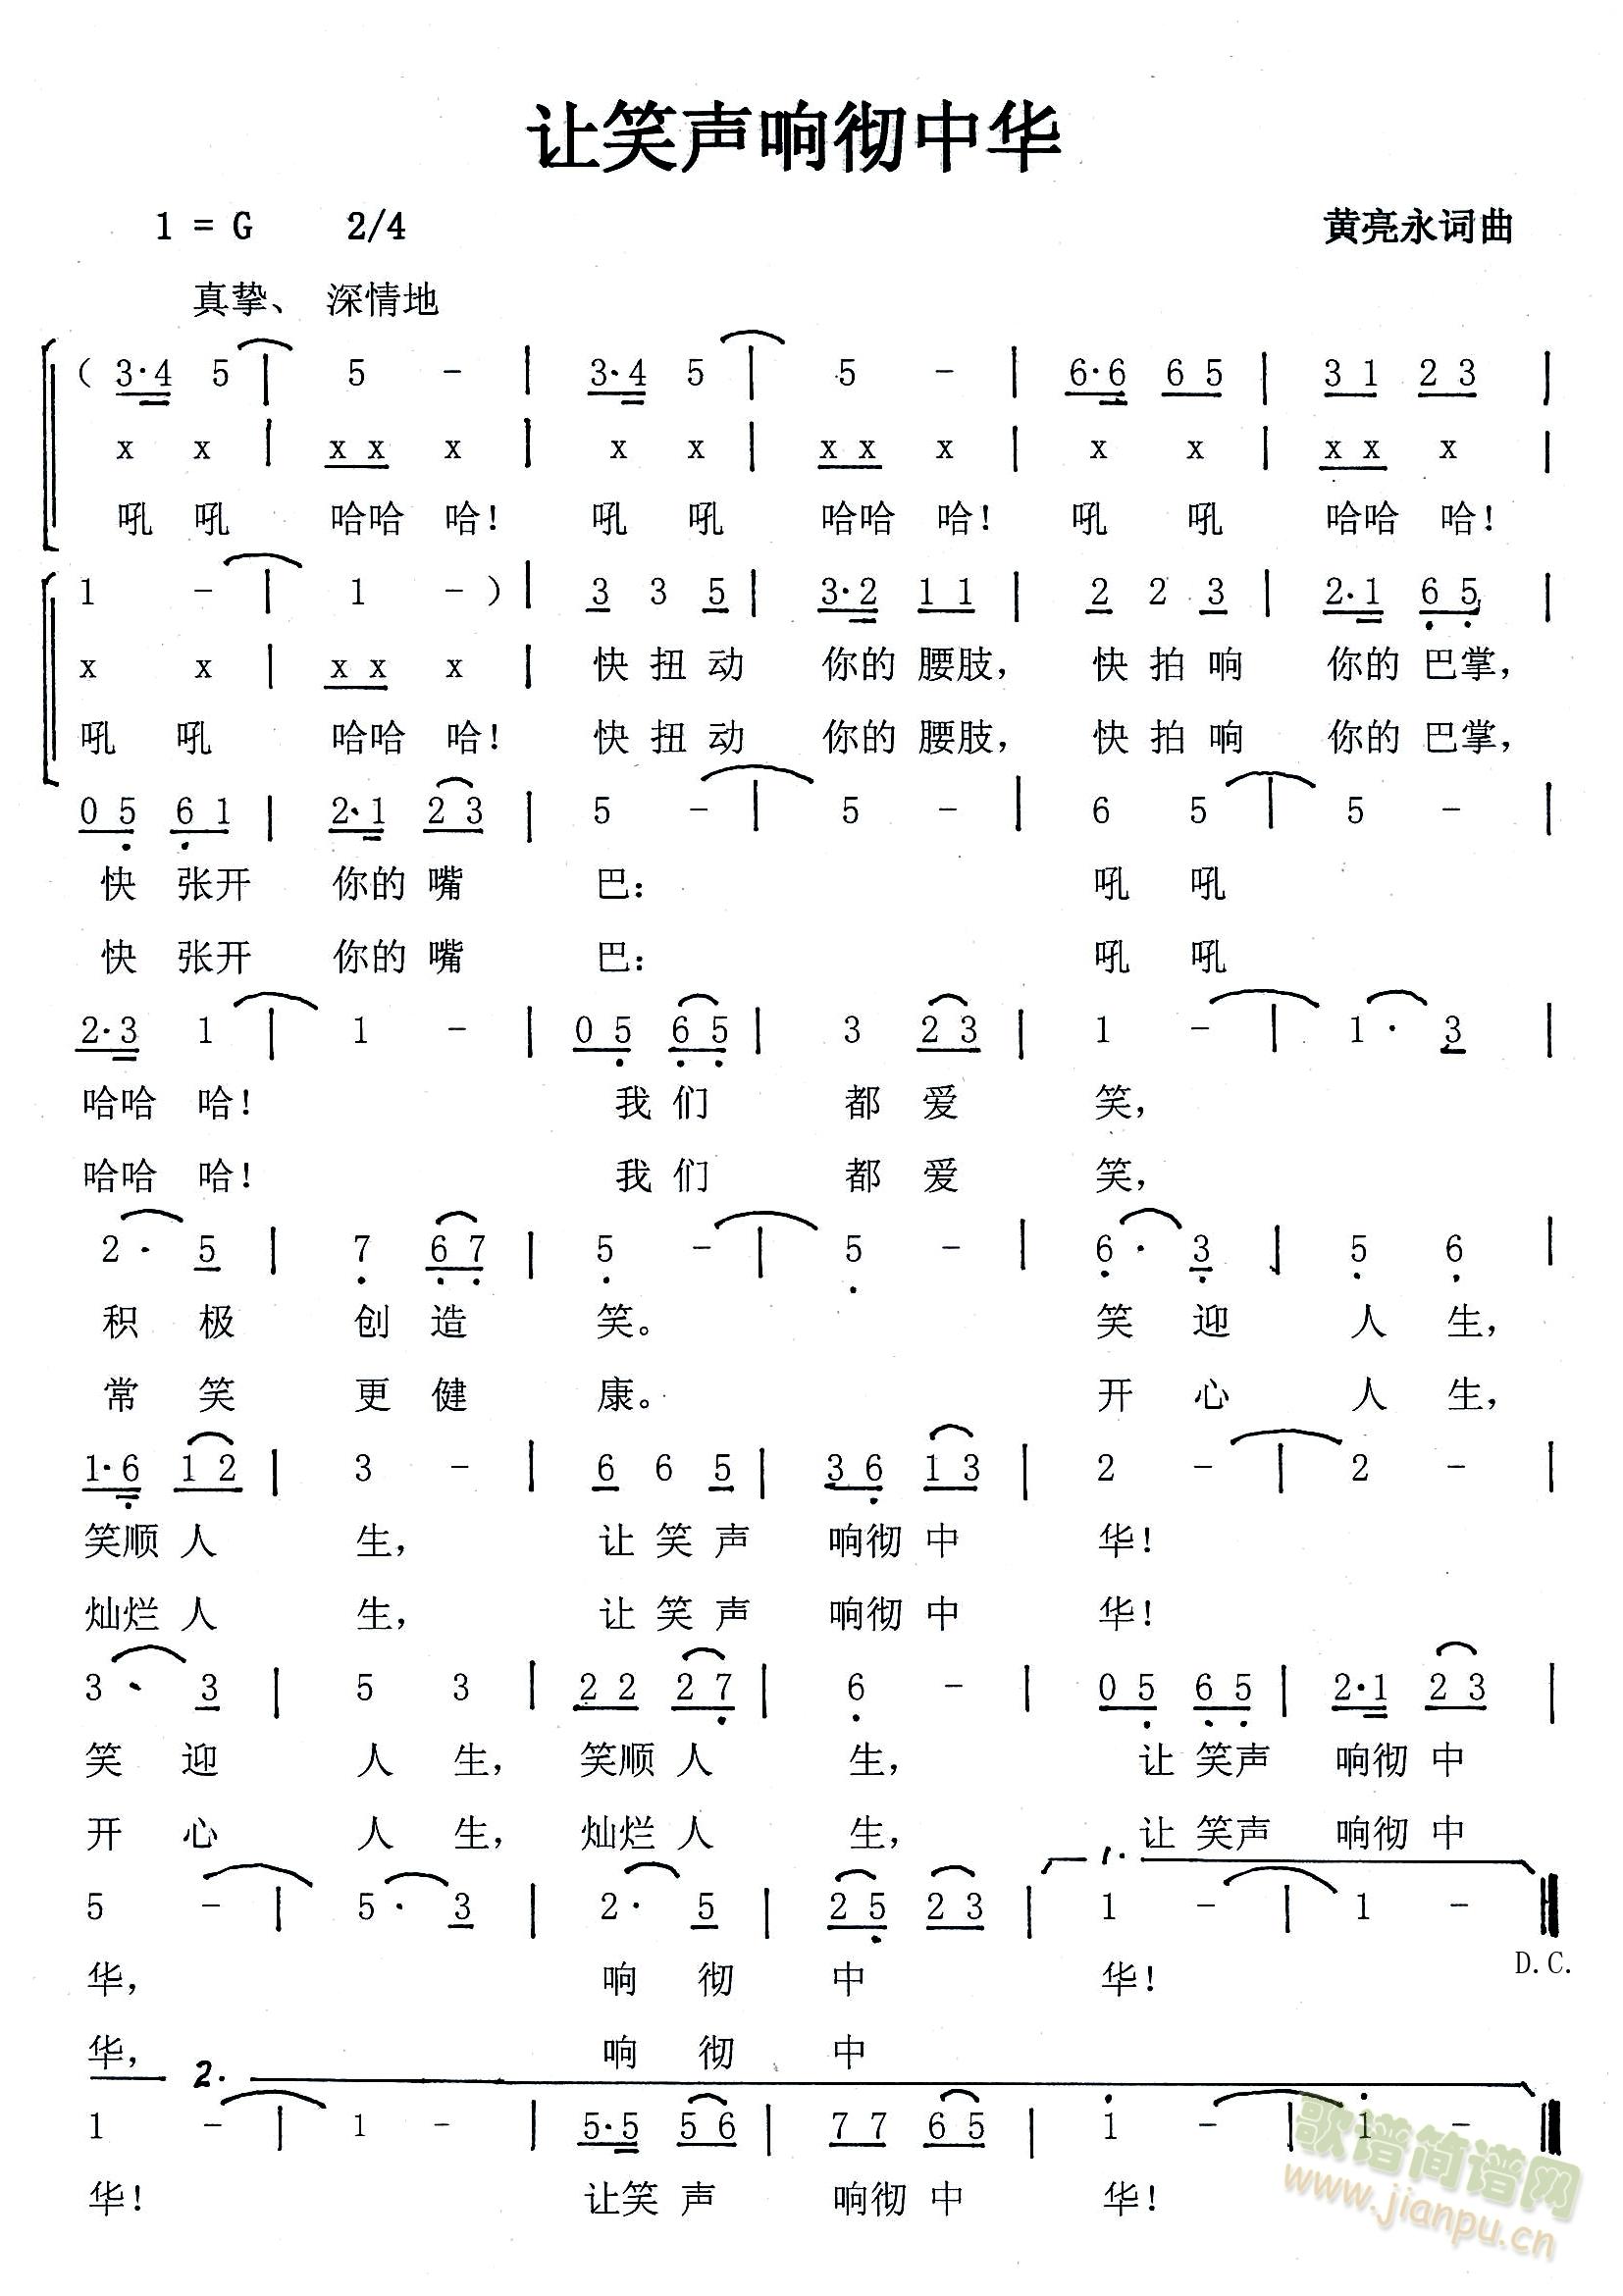 让笑声响彻中华
1 = G 2/4 黄亮永词曲
真挚、 深情地
( 3·4 5 | 5 - | 3·4 5 | 5 - | 6·6 6 5 | 3 1 2 3 |
x x | x x x | x x | x x x | x x | x x x |
吼 吼 哈哈 哈! 吼 吼 哈哈 哈! 吼 吼 哈哈 哈!
1 - | 1 - ) | 3 3 5 | 3·2 1 1 | 2 2 3 | 2·1 6 5 |
x x | x x x | 快 扭 动 你的 腰肢, 快 拍 响 你的 巴掌,
吼 吼 哈哈 哈! 快 扭 动 你的 腰肢, 快 拍 响 你的 巴掌,
0 5 6 1 | 2·1 2 3 | 5 - | 5 - | 6 5 | 5 - |
快 张开 你的 嘴 巴: 吼 吼
快 张开 你的 嘴 巴: 吼 吼
2·3 1 | 1 - | 0 5 6 5 | 3 2 3 | 1 - | 1· 3 |
哈哈 哈! 我 们 都 爱 笑,
哈哈 哈! 我 们 都 爱 笑,
2· 5 | 7 6 7 | 5 - | 5 - | 6· 3 | 5 6 |
积 极 创 造 笑。 笑 迎 人 生,
常 笑 更 健 康。 开 心 人 生,
1·6 1 2 | 3 - | 6 6 5 | 3 6 1 3 | 2 - | 2 - |
笑顺 人 生, 让 笑 声 响彻 中 华!
灿烂 人 生, 让 笑 声 响彻 中 华!
3· 3 | 5 3 | 2 2 2 7 | 6 - | 0 5 6 5 | 2·1 2 3 |
笑 迎 人 生, 笑顺 人 生, 让 笑声 响彻 中
开 心 人 生, 灿烂 人 生, 让 笑声 响彻 中
1.
5 - | 5· 3 | 2· 5 | 2 5 2 3 | 1 - | 1 - ‖
华, 响 彻 中 华! D.C.
华, 响 彻 中
2.
1 - | 1 - | 5·5 5 6 | 7 7 6 5 | 1 - | 1 - ‖
华! 让笑 声 响彻 中 华!
歌谱简谱网
www.jianpu.cn